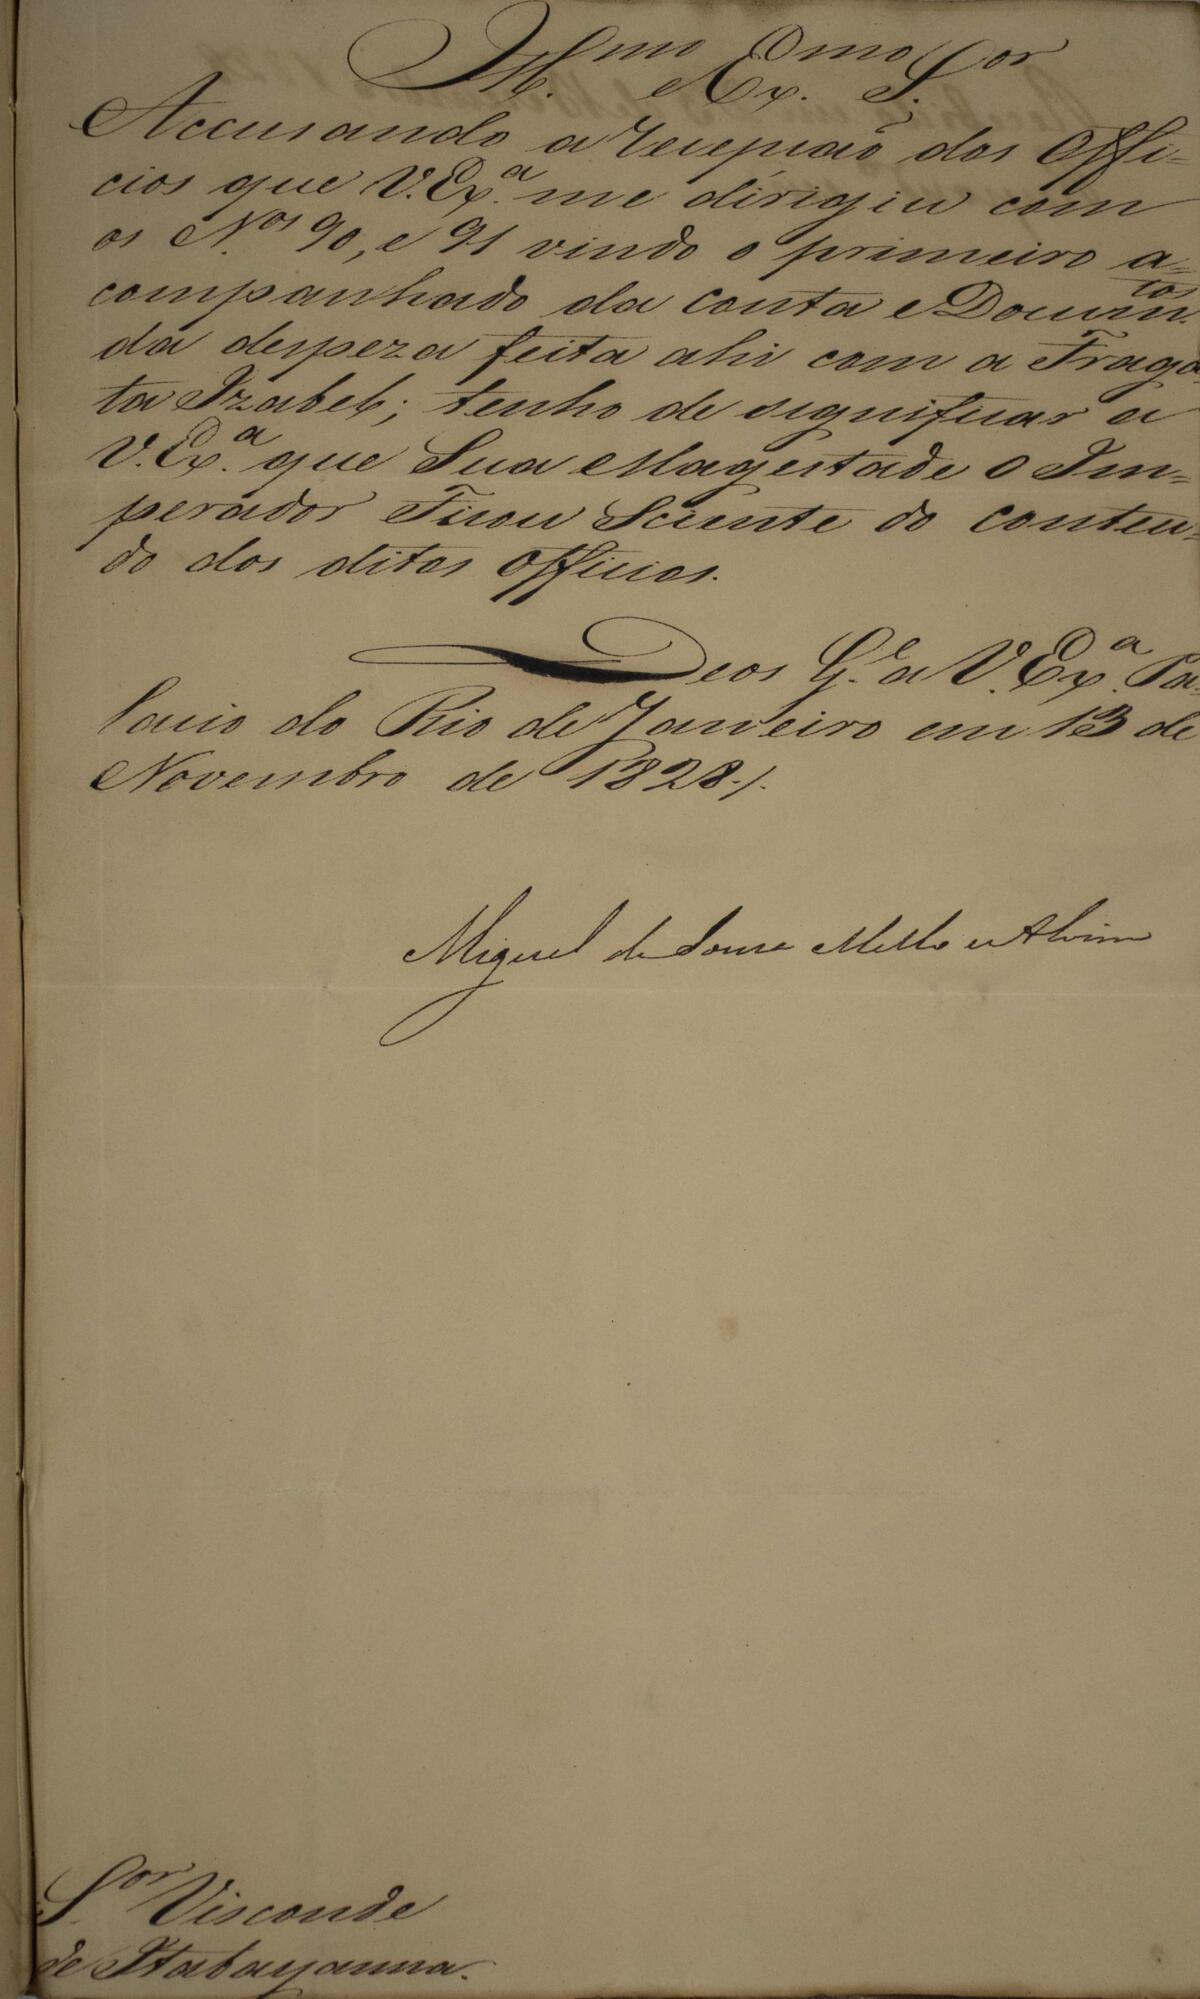 Ill.mo Ex.mo S.or
Accusando a recepcaõ dos Offi-
cios que V. Ex.a me dirigiu com
os N.os 90, e 91 vindo o primeiro a-
companhado da conta e Docum.tos
da despeza feita ahi com a Fraga-
ta Izabel; tenho de significar a
V. Ex.a que Sua Magestade o Im-
perador Ficou Sciente do conteu-
do dos ditos Officios.
Deos G.e a V. Ex.a Pa-
lacio do Rio de Janeiro em 13 de
Novembro de 1828./.
Miguel de Souza Mello e Alvim
S.or Visconde
de Itabayanna.